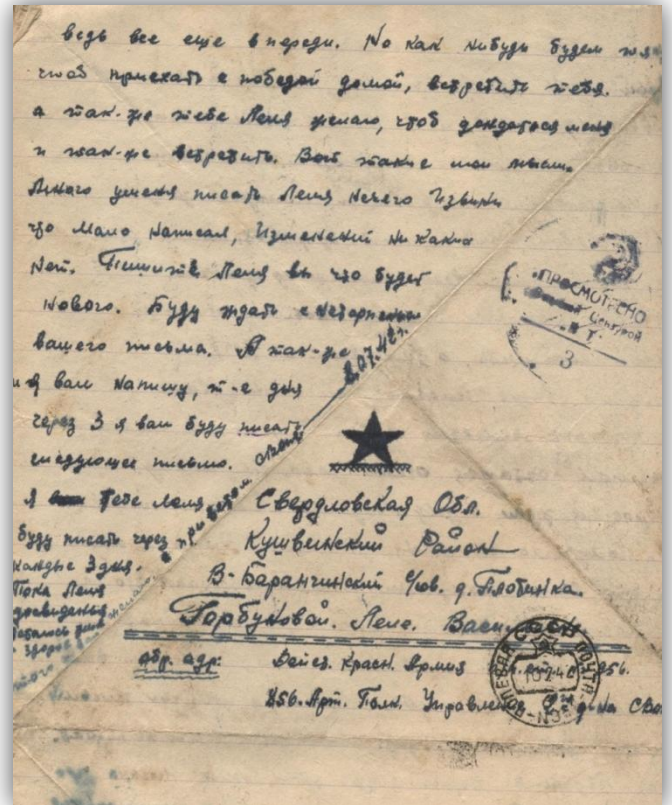 ведь все еще впереди. Но как нибудь будем
чтоб приехать с победой домой, встретить тебя.
а так-же тебе Леля желаю, чтоб дождаться меня
и так-же встретить. Вот такие мои мысли.
Много уменя писать Леля Нечего Извини
что Мало Написал, Изменений Ни каких
Нет. Пишите Леля вы что будет
Нового. Буду ждать с Нетерпением
вашего письма. А так-же
и я вам Напишу, т-е дня
через 3 я вам буду писать
следующее письмо.
Я Тебе Леля
буду писать через
каждые 3 дня.
Пока Леля
досвиданья
с приветом
2.07.42г.
ПРОСМОТРЕНО
Военной Цензурой
3
Свердловская Обл.
Кушвинский Район
В-Баранчинский с/сов. д. Плотинка.
Горбуновой. Леле. Васил
обр. адр.
Дейст. Красн. Армия 856.
856. Арт. Полк. Управление
СССР ПОЛЕВАЯ ПОЧТА